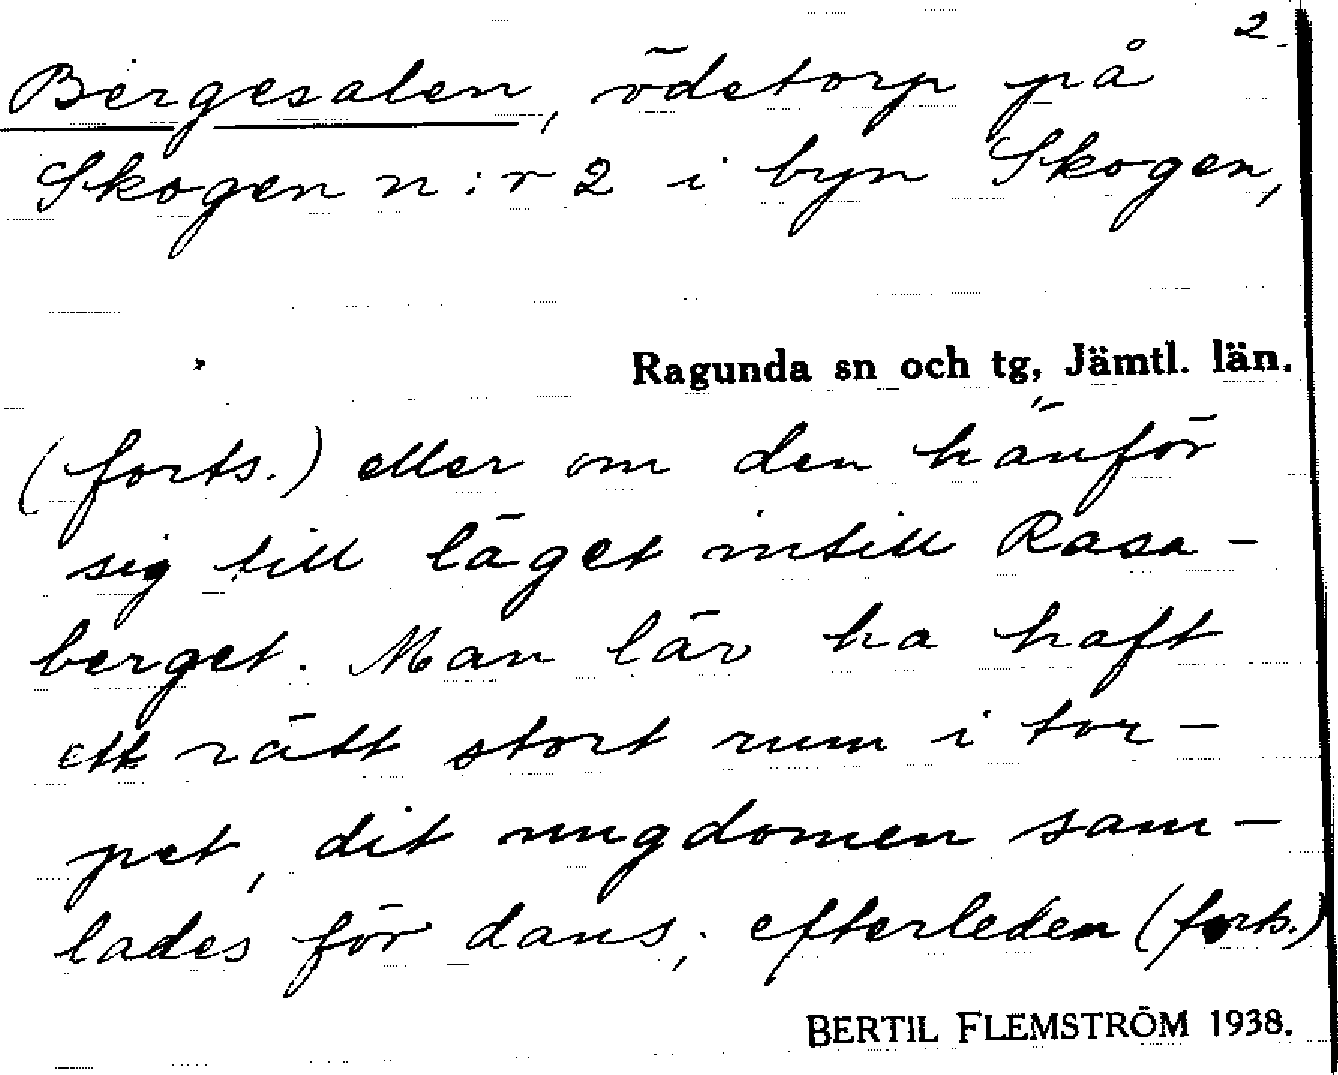 2.
Bergesalen, ödetorp på
Skogen n:r 2 i byn Skogen,
Ragunda sn och tg, Jämtl. län.
(forts.) eller om den hänför
sig till läget intill Rasa-
berget. Man lär ha haft
ett rätt stort rum i tor-
pet, dit ungdomen sam-
lades för dans; efterleden (forts.)
BERTIL FLEMSTRÖM 1938.